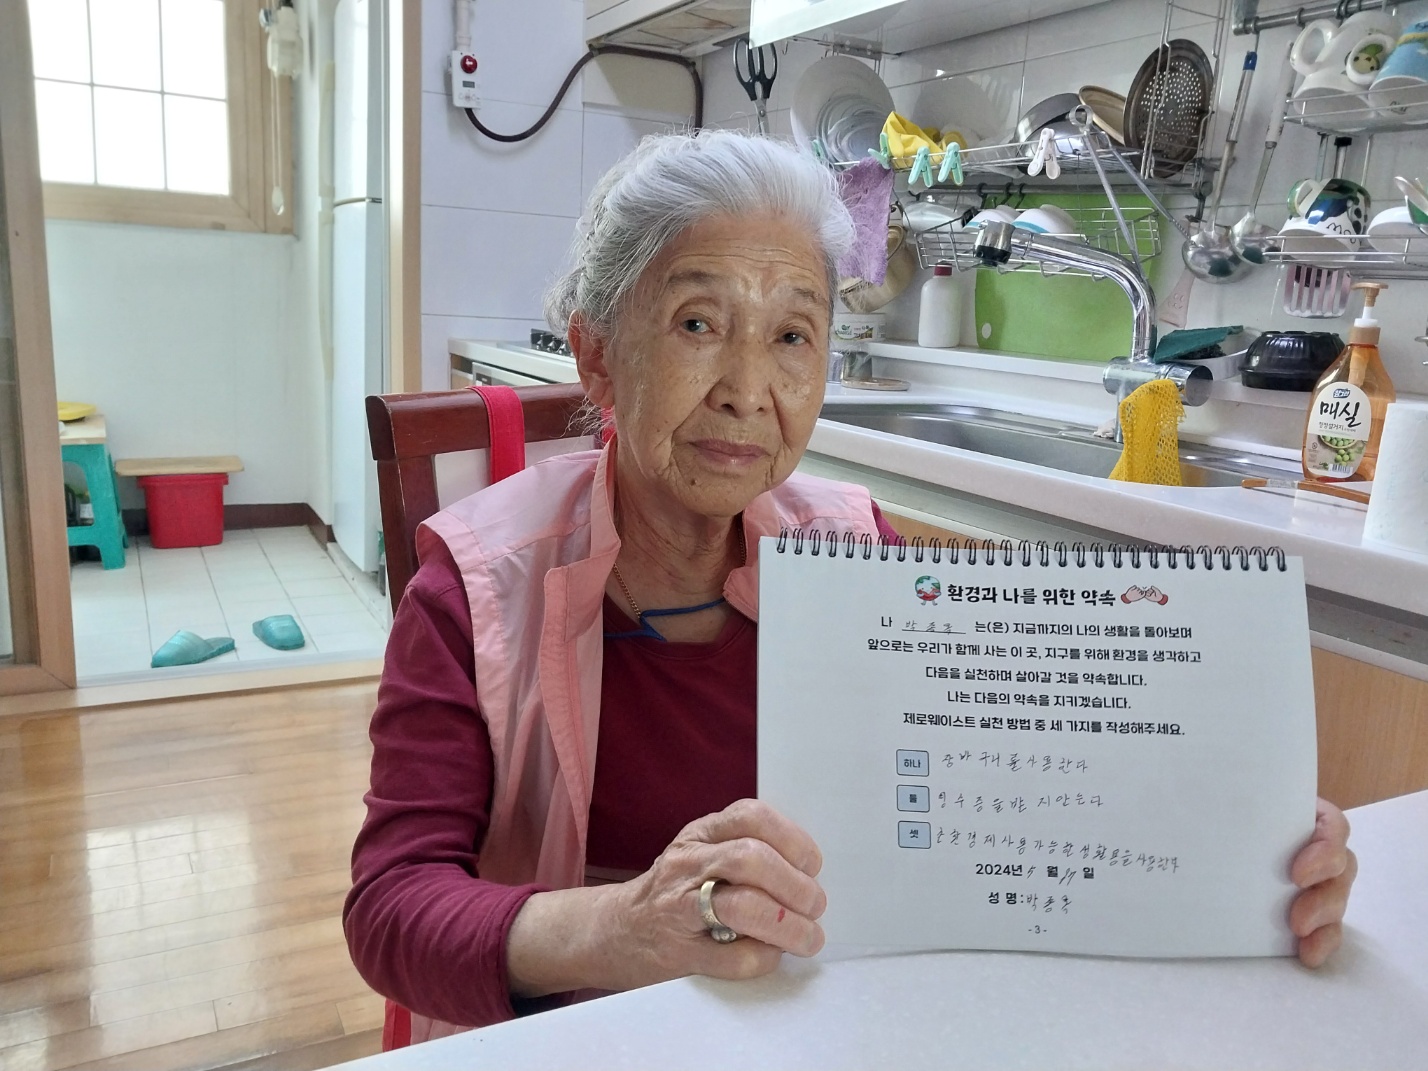 환경과 나를 위한 약속
나 박종옥 는(은) 지금까지의 나의 생활을 돌아보며
앞으로는 우리가 함께 사는 이 곳, 지구를 위해 환경을 생각하고
다음을 실천하며 살아갈 것을 약속합니다.
나는 다음의 약속을 지키겠습니다.
제로웨이스트 실천 방법 중 세 가지를 작성해주세요.
하나 장바구니를사용한다
둘 영수증을받지안는다
셋 친환경제사용가능한생활용을사용한다
2024년 5 월 일
성 명:박종옥
-3-
매실